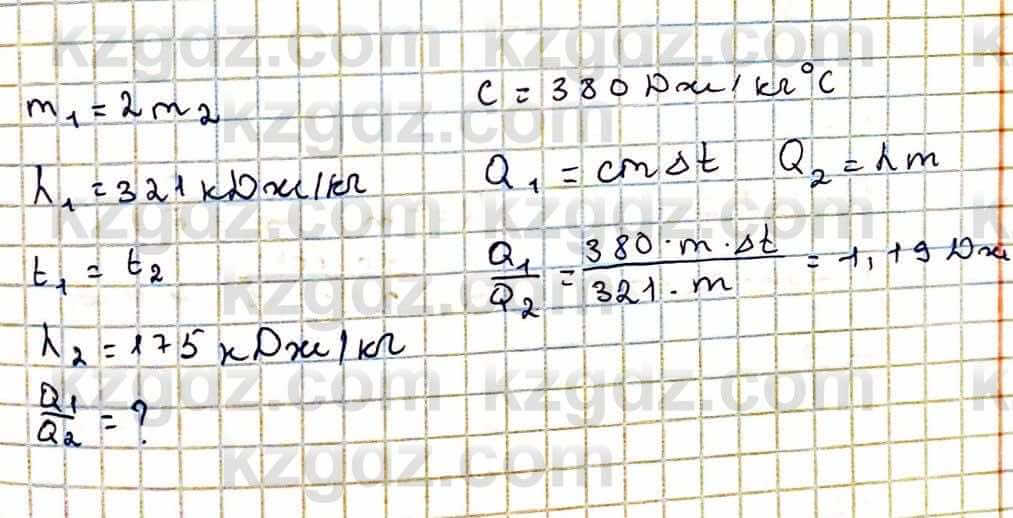 kzgdz.com kzgdz.com
m₁ = 2m₂
λ₁ = 321 кДж/кг
t₁ = t₂
λ₂ = 175 кДж/кг
Q₁/Q₂ = ?
c = 380 Дж/кг°C
Q₁ = cmΔt Q₂ = λm
Q₁/Q₂ = 380·m·Δt/321·m = 1,19 Дж
kzgdz.com
kzgdz.com kzgdz.com
kzgdz.com
kzgdz.com kzgdz.com
kzgdz.com